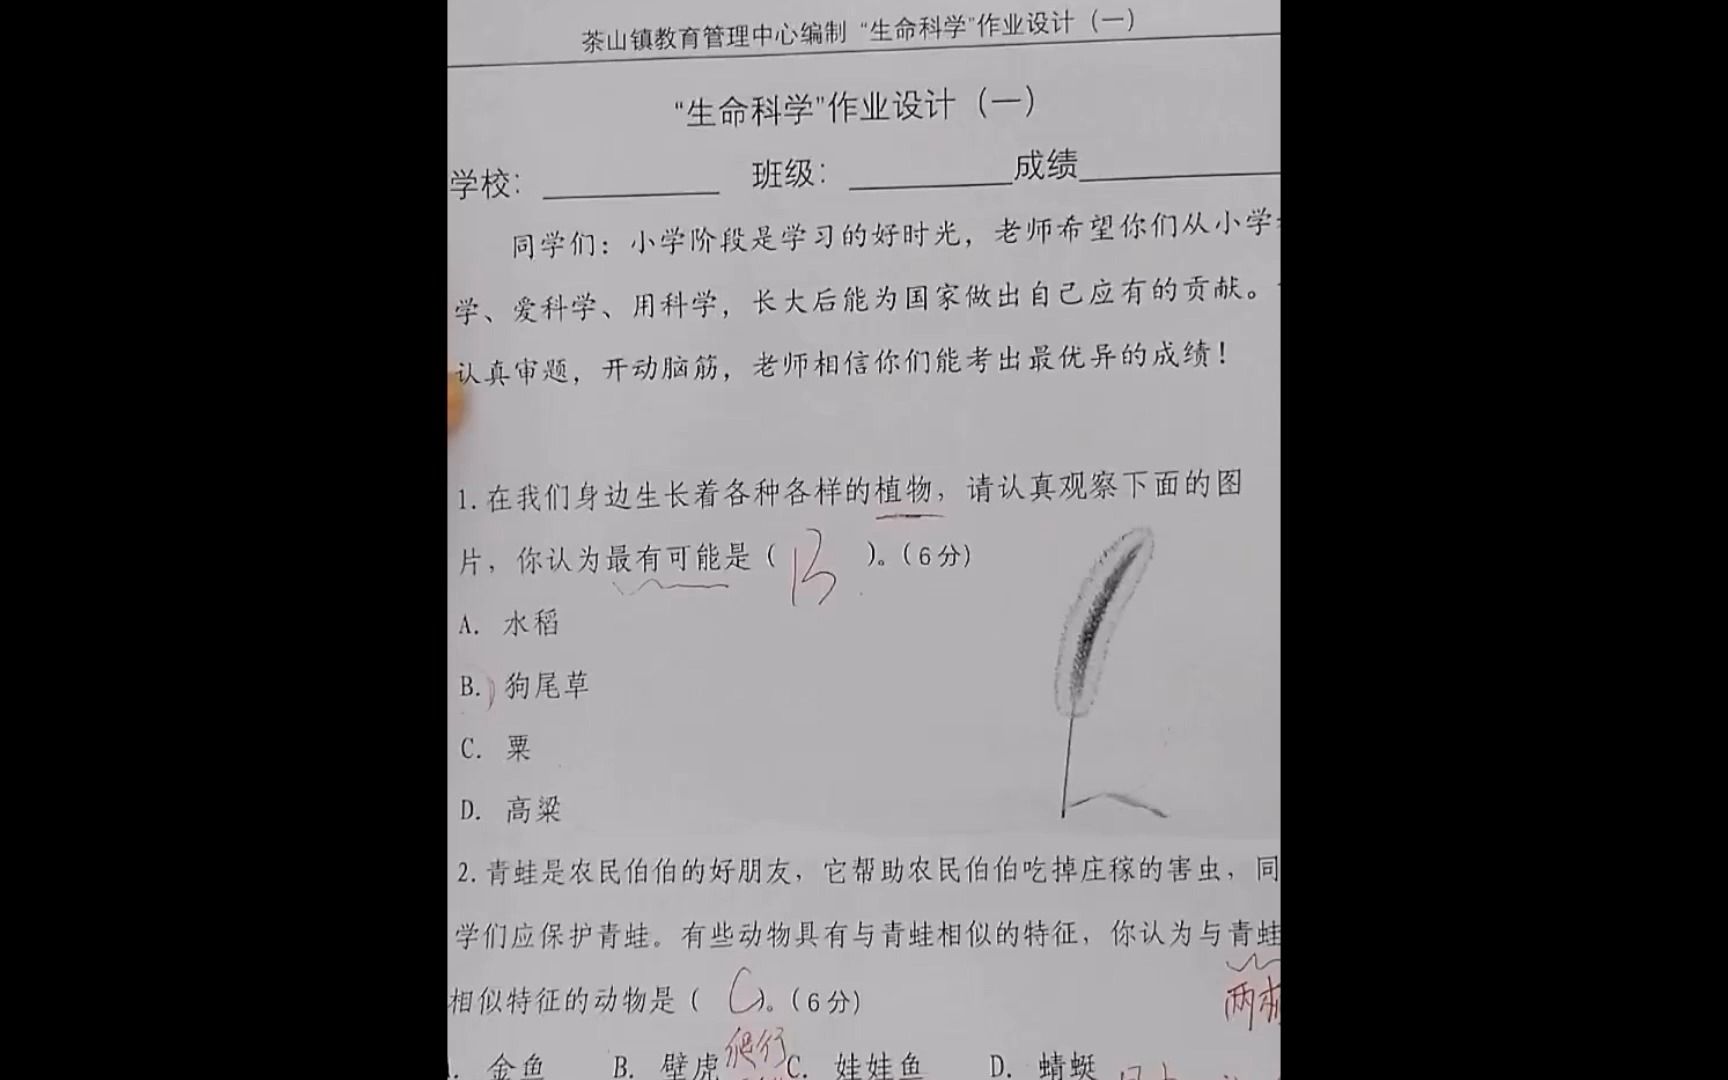 茶山镇教育管理中心编制 “生命科学”作业设计（一）
“生命科学”作业设计（一）
学校：＿＿＿＿ 班级：＿＿＿＿成绩＿＿＿＿
同学们：小学阶段是学习的好时光，老师希望你们从小学
学、爱科学、用科学，长大后能为国家做出自己应有的贡献。
认真审题，开动脑筋，老师相信你们能考出最优异的成绩！
1.在我们身边生长着各种各样的植物，请认真观察下面的图
片，你认为最有可能是（ B ）。（6分）
A. 水稻
B. 狗尾草
C. 粟
D. 高粱
2.青蛙是农民伯伯的好朋友，它帮助农民伯伯吃掉庄稼的害虫，同
学们应保护青蛙。有些动物具有与青蛙相似的特征，你认为与青蛙
相似特征的动物是（ C ）。（6分）
两栖
爬行
金鱼 B. 壁虎 C. 娃娃鱼 D. 蜻蜓